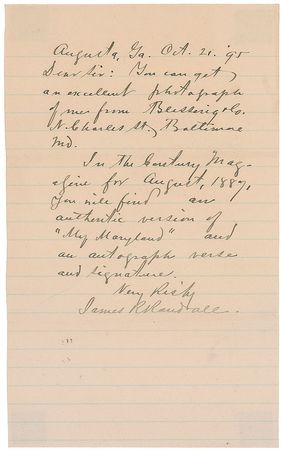 Augusta, Ga. Oct. 21. '95
Dear Sir: You can get
an excellent photograph
of me from Blessing & Co.
N. Charles St., Baltimore
Md.
In the Century Mag-
azine for August, 1887,
you will find an
authentic version of
"My Maryland" and
an autograph verse
and signature.
Very Resp'y
James R. Randall.